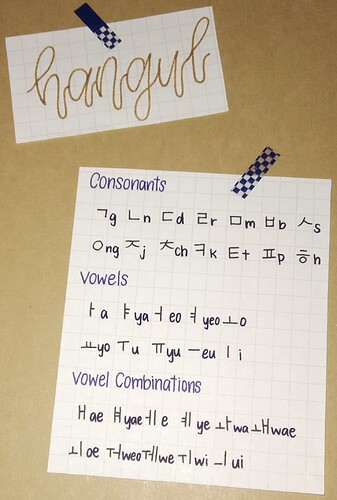 hangul
Consonants
ㄱg ㄴn ㄷd ㄹr ㅁm ㅂb ㅅs
ㅇng ㅈj ㅊch ㅋk ㅌt ㅍp ㅎh
Vowels
ㅏa ㅑya ㅓeo ㅕyeo ㅗo
ㅛyo ㅜu ㅠyu ㅡeu ㅣi
Vowel Combinations
ㅐae ㅒyae ㅔe ㅖye ㅘwa ㅙwae
ㅚoe ㅝweo ㅞwe ㅟwi ㅢui